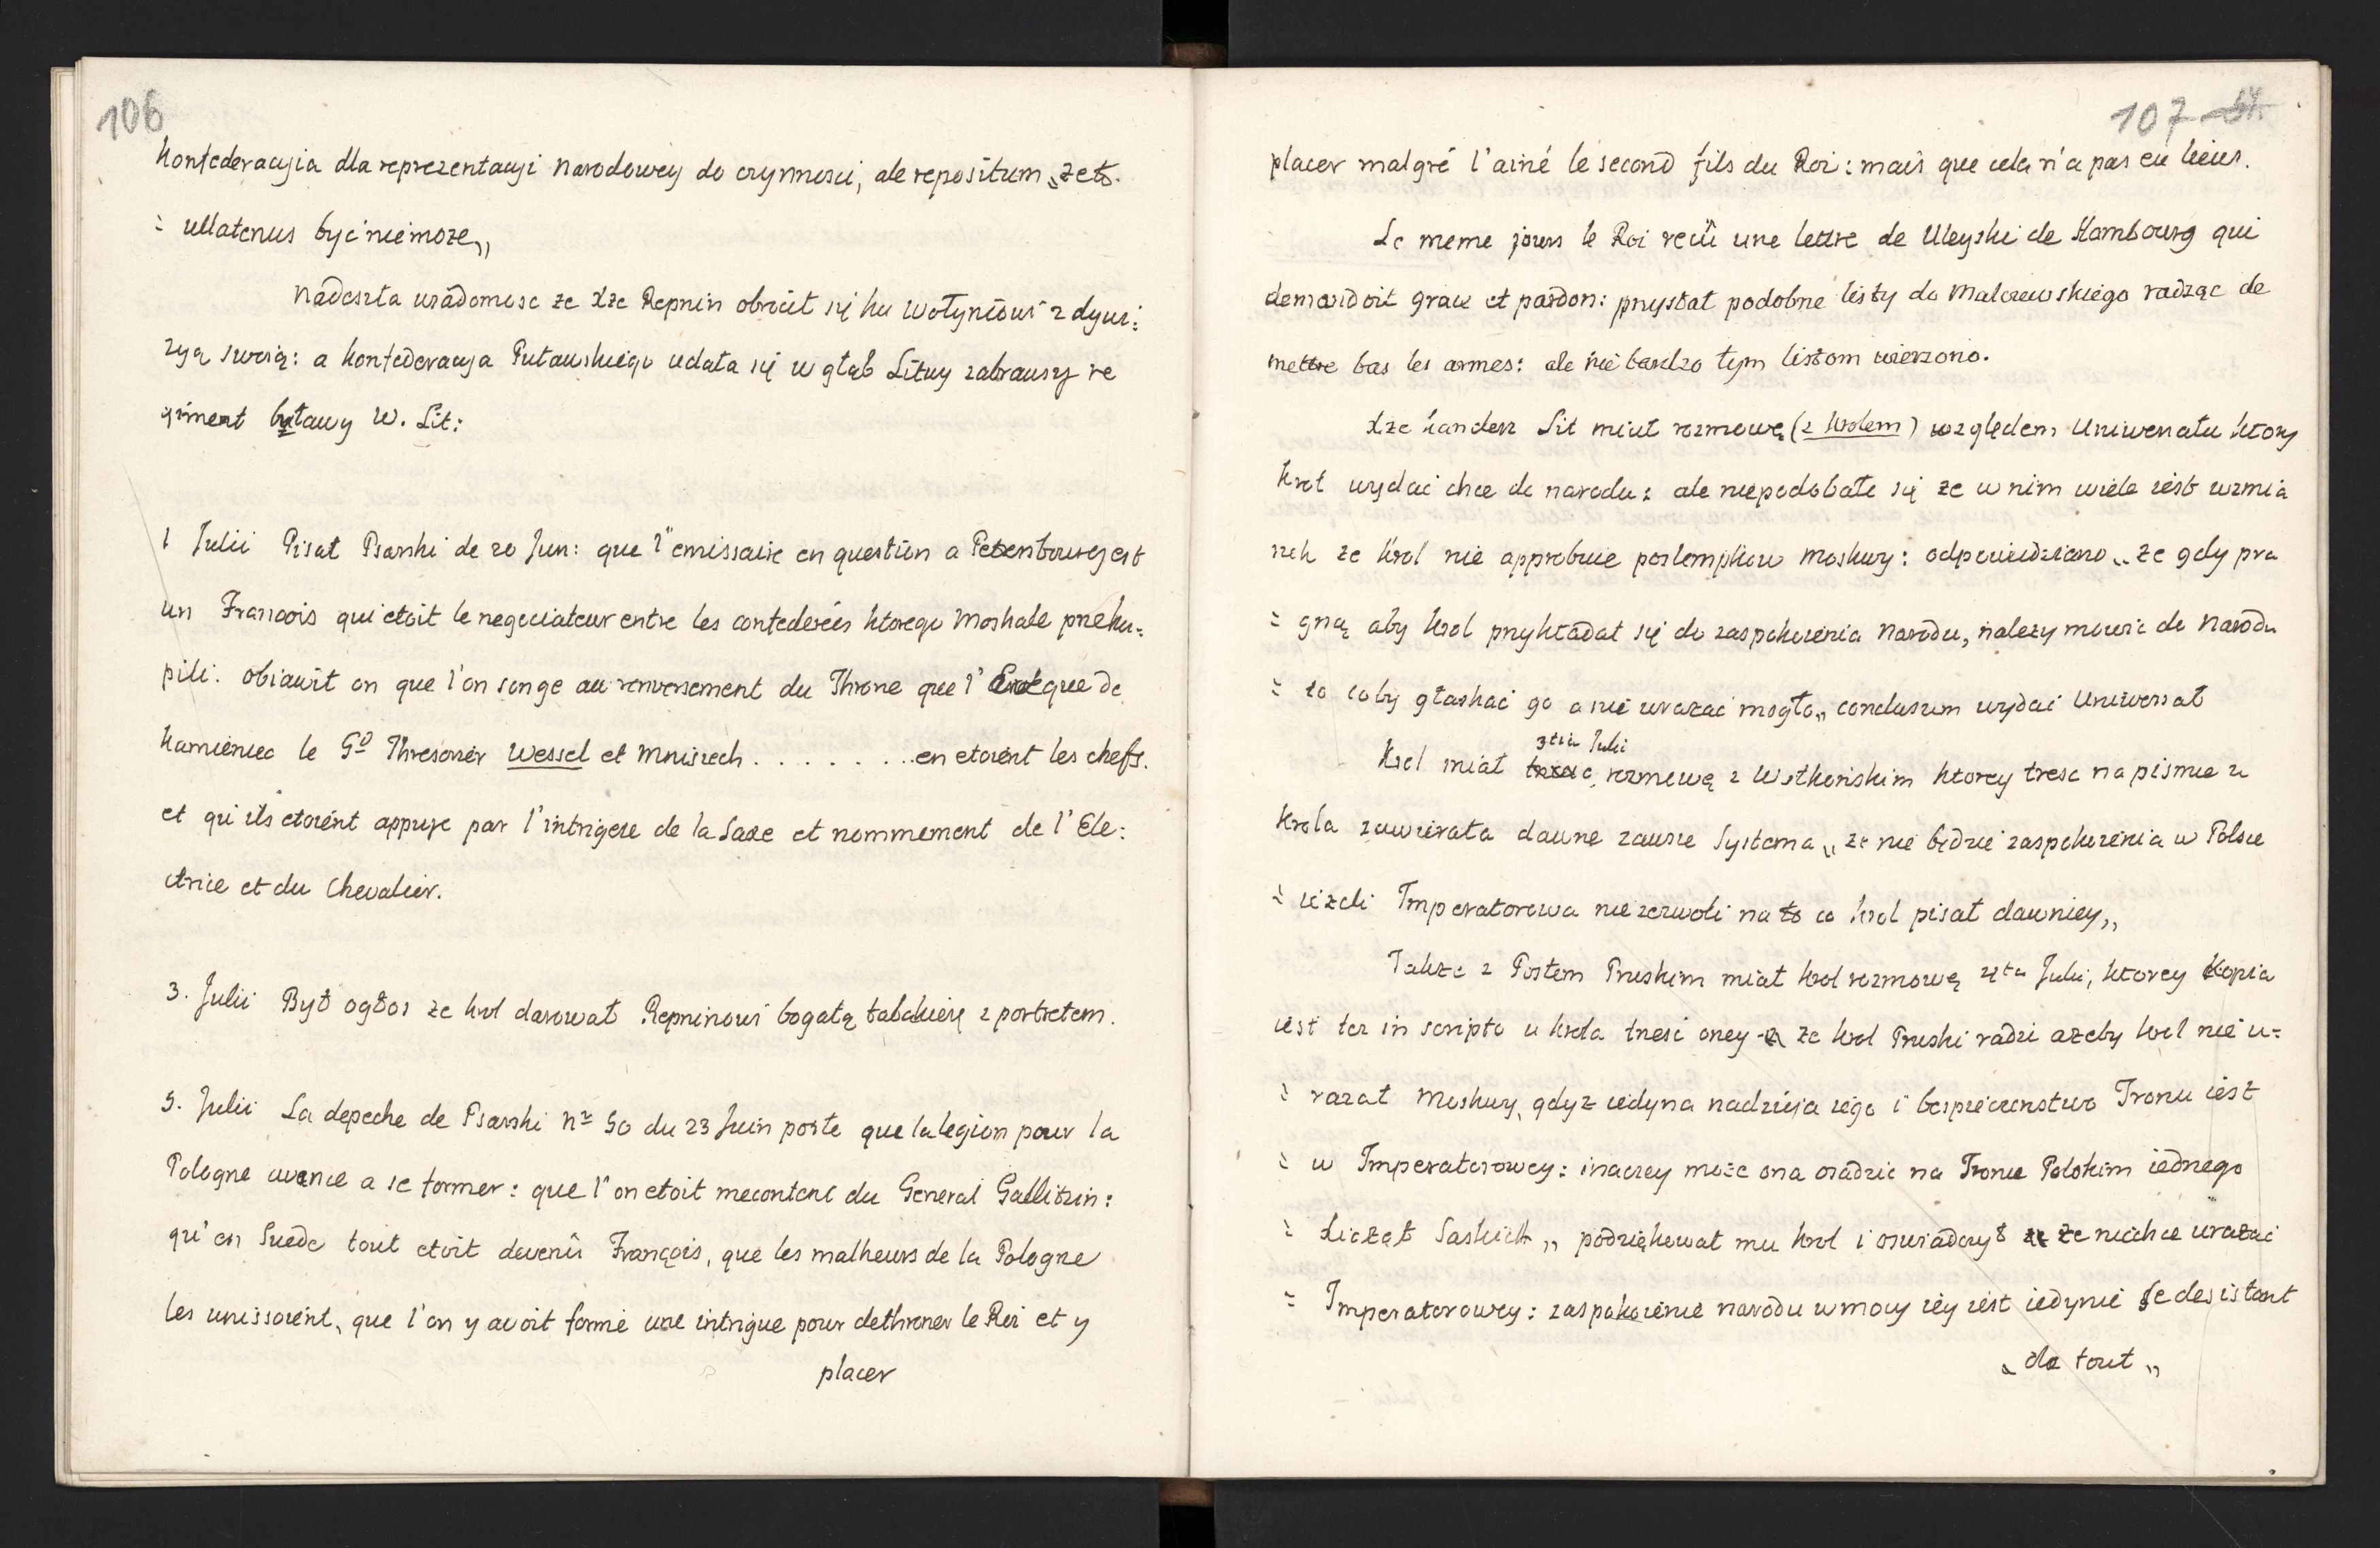 106
Konfederacyia dla reprezentacyi Narodowey do czynnosci, ale repositum „ze to
= ullatenus być nie moze„
Nadeszła wiadomosc ze Xze Repnin obrócił się ku Wołyniowi z dywi:
zyą swoią: a konfederacya Puławskiego udała się w głąb Litwy zabrawszy re
giment buławy W. Lit:
1 Julii Pisał Psarski de 20 Jun: que l'emissaire en question a Petersbourg est
un Francois qui etoit le negociateur entre les confederées ktorego Moskale przeku=
pili. obiawił on que l'on songe au renversement du Throne que l' Eveque de
Kamieniec le Gd Thresorier Wessel et Mniszech . . . . . . . . en etoient les chefs.
et qu'ils etoient appuye par l'intrigue de la Saxe et nommement de l'Ele:
ctrice et du Chevalier.
3. Julii Był ogłos ze krol darował Repninowi bogatą tabakierę z portretem.
5. Julii La depeche de Psarski nr 50 du 23 Juin porte que la legion pour la
Pologne avance a se former: que l'on etoit mecontent du General Gallitzin:
qu'en Suede tout etoit devenû François, que les malheurs de la Pologne
les unissoient, que l'on y avoit formé une intrigue pour dethroner le Roi et y
placer
107
placer malgré l'ainé le second fils du Roi: mais que cela n'a pas eu lieus.
Le meme jours le Roi recû une lettre de Uleyski de Hambourg qui
demandoit grace et pardon: przysłał podobne listy do Malczewskiego radząc de
mettre bas les armes: ale nie bardzo tym listom wierzono.
Xze kanclerz Lit miał rozmowę (z krolem) względem Uniwersału ktory
Krol wydać chce do narodu: ale niepodobało się ze w nim wiele iest wzmia
nek ze krol nie approbuie postempkow Moskwy: odpowiedziano „ze gdy pra
= gną aby krol przykładał się do zaspokoienia Narodu, nalezy mowic do Narodu
= to coby głaskać go a nie urazać mogło„ conclusum wydać Uniwersał
Krol miał 3tia Julii rozmowę z Wołkońskim ktorey tresc na pismie u
Krola zawierała dawne zawsze Systema „ze nie będzie zaspokoienia w Polsce
= iezeli Imperatorowa nie zezwoli na to co krol pisał dawniey„
Takze z Posłem Pruskim miał krol rozmowę 4ta Julii, ktorey Kopia
iest tez in scripto u krola tresć oney ze krol Pruski radzi azeby krol nie u=
= razał Moskwy, gdyz iedyna nadzieja iego i bespieczenstwo Tronu iest
= w Imperatorowey: inaczey moze ona osadzic na Tronie Polskim iednego
= Xieząt Saskich „ podziękował mu krol i oswiadczył ze niechce urazac
= Imperatorowey: zaspokoienie narodu w mocy iey iest iedynie se desistant
„ de tout „